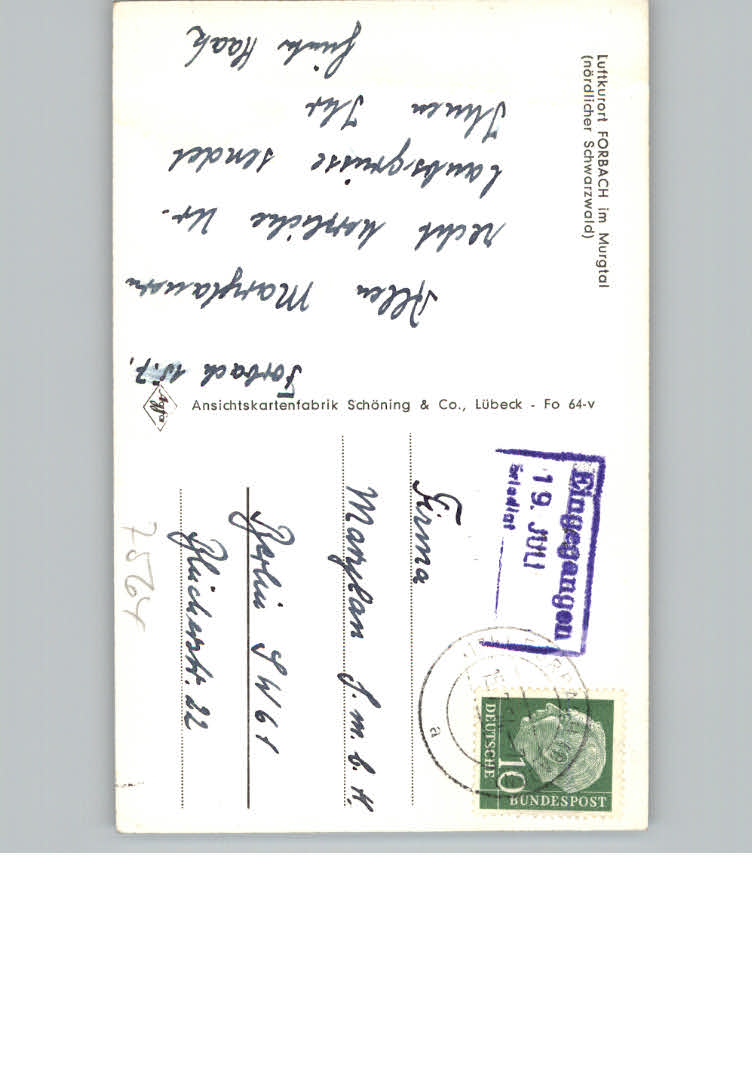 Luftkurort FORBACH im Murgtal
(nördlicher Schwarzwald)
Forbach 15.7.
Allen Marylanern
recht herzliche Ur-
laubsgrüsse sendet
Ihnen Ihr
Ansichtskartenfabrik Schöning & Co., Lübeck - Fo 64-v
Agfa
Eingegangen
19. JULI
Erledigt
DEUTSCHE
BUNDESPOST
10
a
Firma
Marylan G.m.b.H.
Berlin SW61
Blücherstr. 22
7564